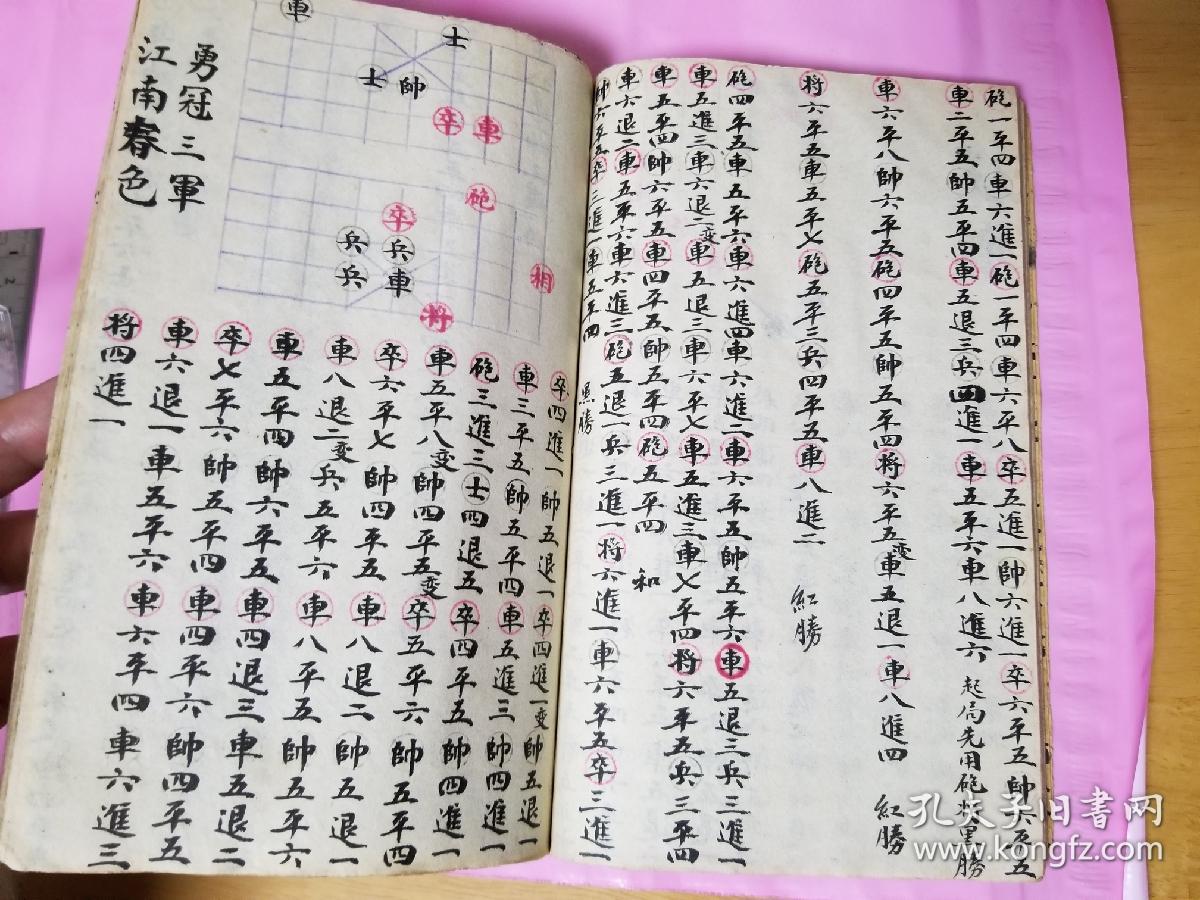 砲一平四車六進一砲一平四車六平八卒五進一帥六進一卒六平五帥六平五
車二平五帥五平四車五退三兵四進一車五平六車八進六 起局先用砲將黑勝
車六平八帥六平五砲四平五帥五平四将六平五变車五退一車八進四 紅勝
将六平五車五平七砲五平三兵四平五車八進二 紅勝
砲四平五車五平六車六進四車六進二車六平五帥五平六車五退三兵三進一
車五進三車六退二变車五退三車六平七車五進三車七平四将六平五兵三平四
車五平四帥六平五車四平五帥五平四砲五平四 和
車六退二車五平六車六進三砲五退一兵三進一将六進一車六平五卒三進一
帥六平五卒三進一車五平四 黑勝
勇冠三軍
江南春色
車
士
士帥
卒車
砲
卒
兵兵
兵車
相
将
卒四進一帥五退一卒四進一变帥五退一
車三平五帥五平四車五進三帥四進一
砲三進三士四退五卒四平五帥四進一
車五平八变帥四平五变卒五平六帥五平四
卒六平七帥四平五車八退二帥五退一
車八退二变兵五平六車八平五帥五平六
車五平四帥六平五車四退三車五退二
卒七平六帥五平四車四平六帥四平五
車六退一車五平六車六平四車六進三
将四進一
孔夫子旧書网
www.kongfz.com